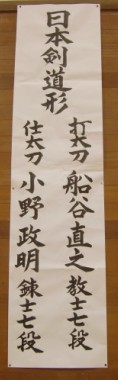 日本剣道形
打太刀 船谷直之 教士七段
仕太刀 小野政明 錬士七段